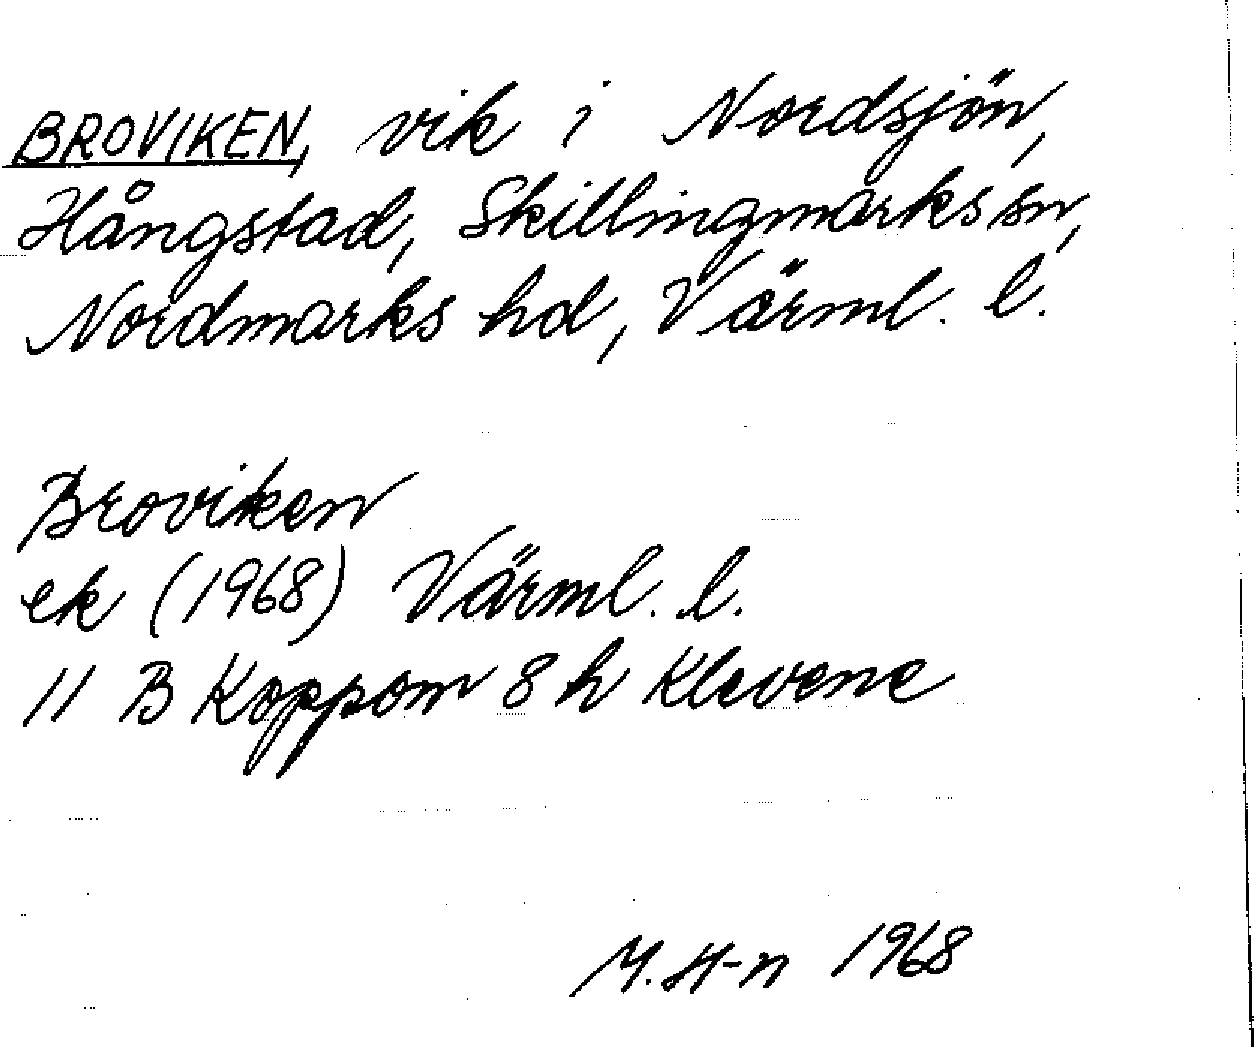 BROVIKEN, vik i Nordsjön,
Hångstad, Skillingmarks sn,
Nordmarks hd, Värml. l.
Broviken
ek (1968) Värml. l.
11 B Koppom 8 h Klevene
M. H-n 1968